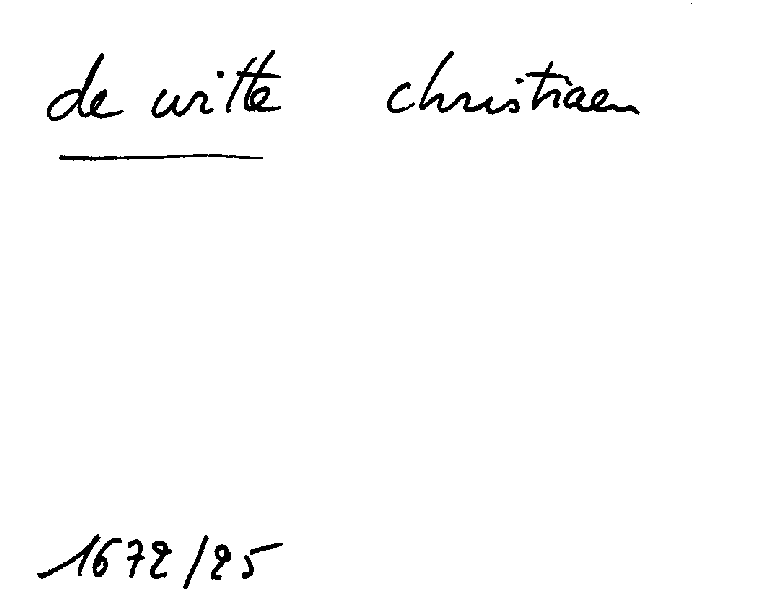 de witte christiaen
1672/25